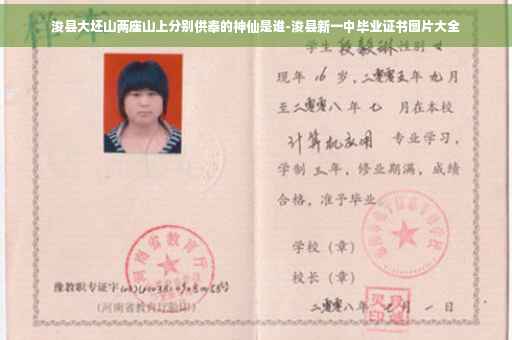 浚县大坯山两座山上分别供奉的神仙是谁-浚县新一中毕业证书图片大全
学生 段毅琳 性别 女
现年 16 岁，二零零五年 九月
至二零零八年 七 月在本校
计算机应用 专业学习，
学制 三年，修业期满，成绩
合格，准予毕业
学校（章）
校长（章）
河南省教育厅
豫教职专证字
（河南省教育厅验印）
二零零八年 七 月 一 日